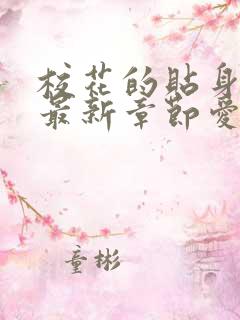 校花的贴身
最新章节爱
童彬